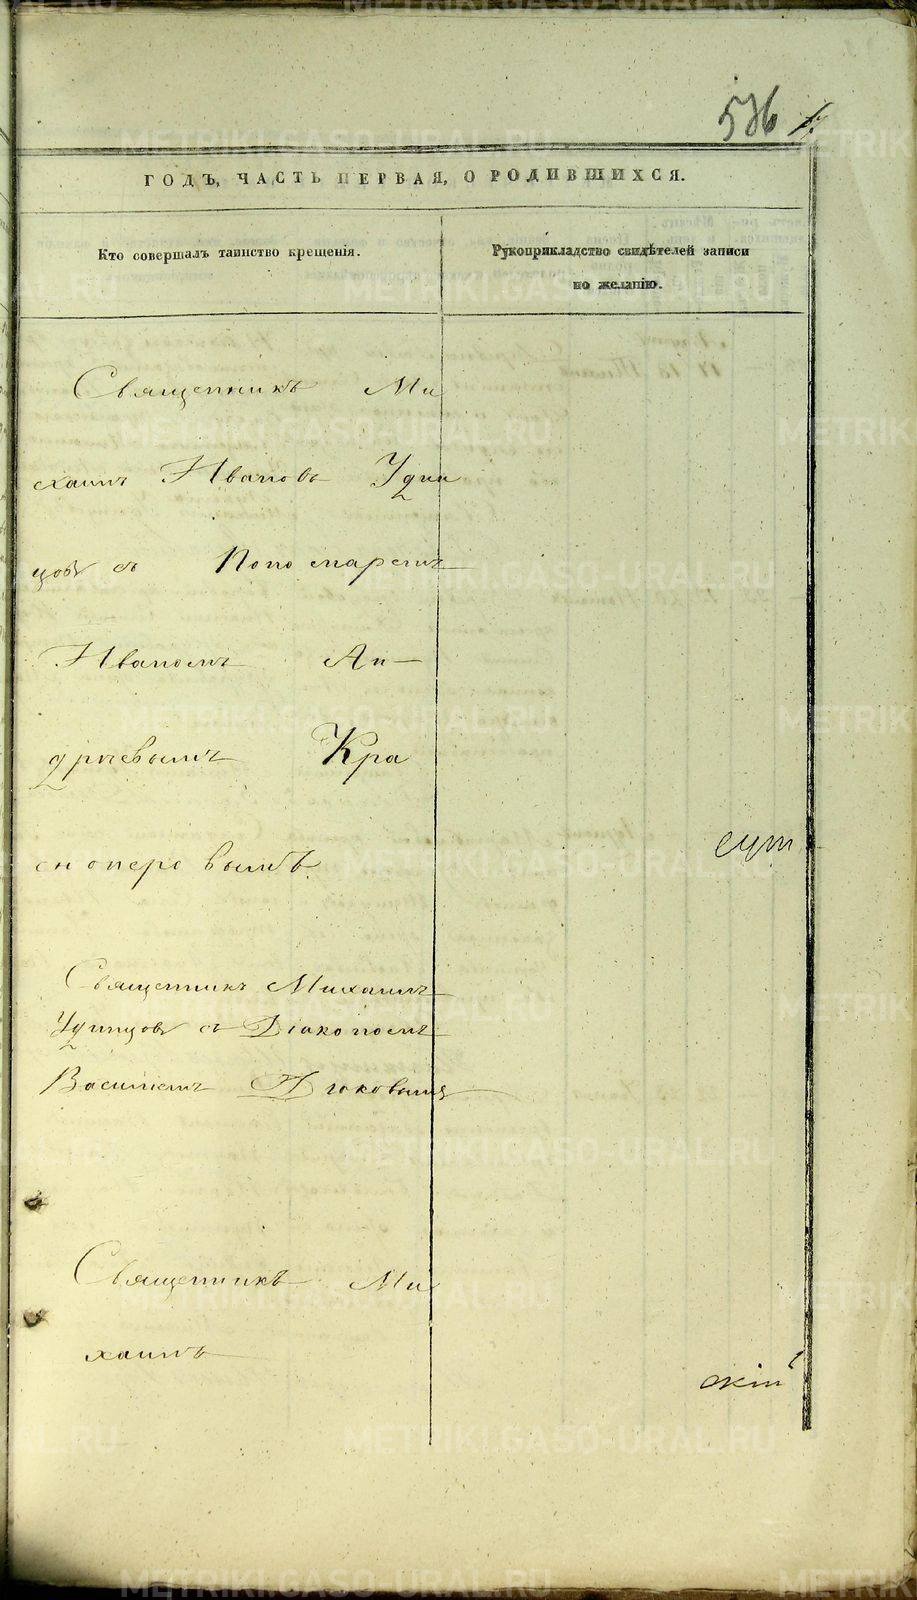 536
ГОДЪ, ЧАСТЬ ПЕРВАЯ, О РОДИВШИХСЯ.
Кто совершалъ таинство крещенія.
Рукоприкладство свидѣтелей записи
по желанію.
Священникъ Ми
хаилъ Ивановъ Удин
цовъ съ Пономаремъ
Иваномъ Ан-
дреевымъ Кра
сноперовымъ.
сут
Священникъ Михаилъ
Удинцовъ съ Діакономъ
Василіемъ Дьяковымъ
Священникъ Ми
хаилъ
скій
METRIKI.GASO-URAL.RU